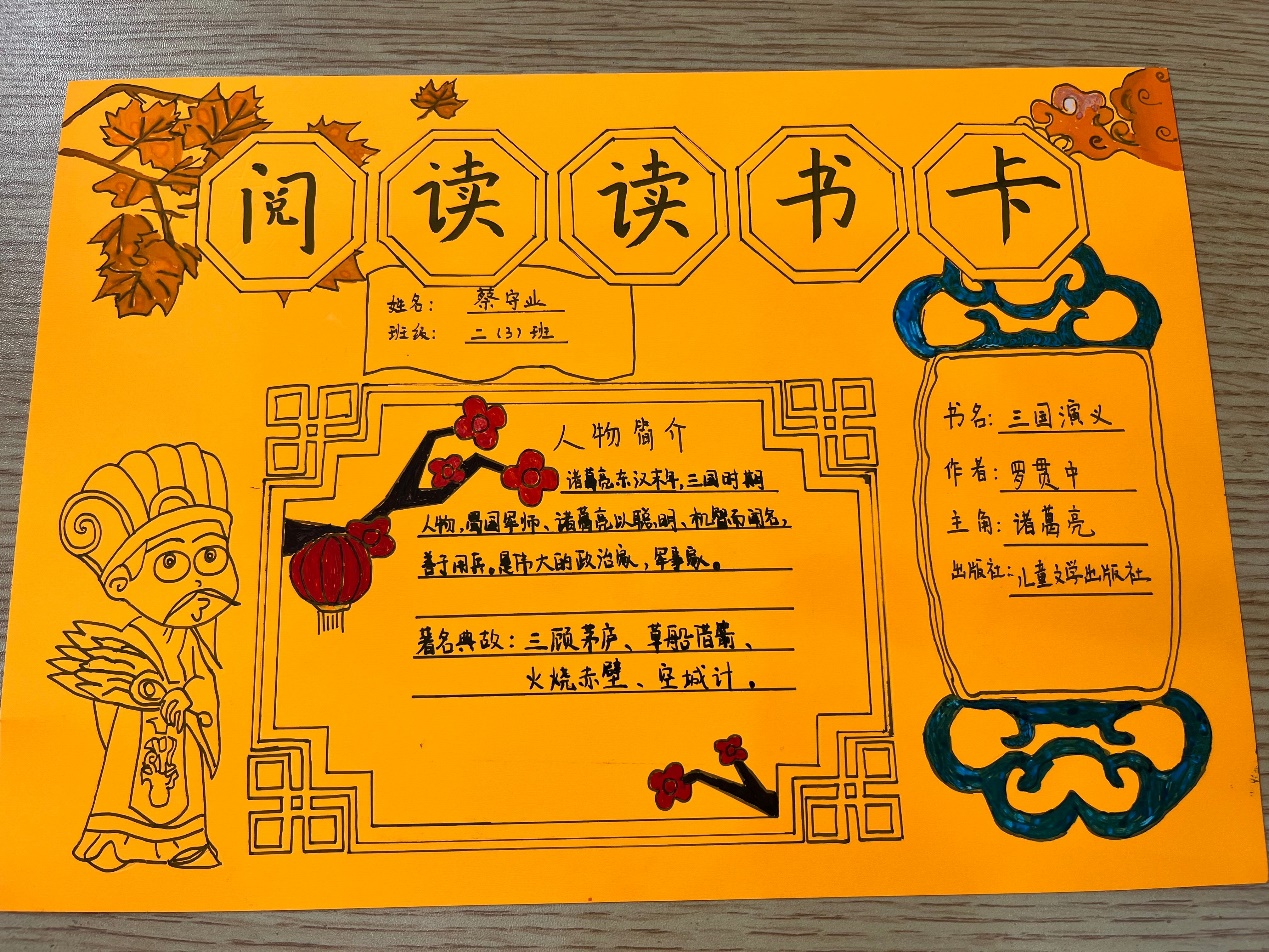 阅读读书卡
姓名：蔡守业
班级：二（3）班
人物简介
诸葛亮东汉末年，三国时期
人物，蜀国军师、诸葛亮以聪明、机智而闻名，
善于用兵。是伟大的政治家，军事家。
著名典故：三顾茅庐、草船借箭、
火烧赤壁、空城计。
书名：三国演义
作者：罗贯中
主角：诸葛亮
出版社：儿童文学出版社